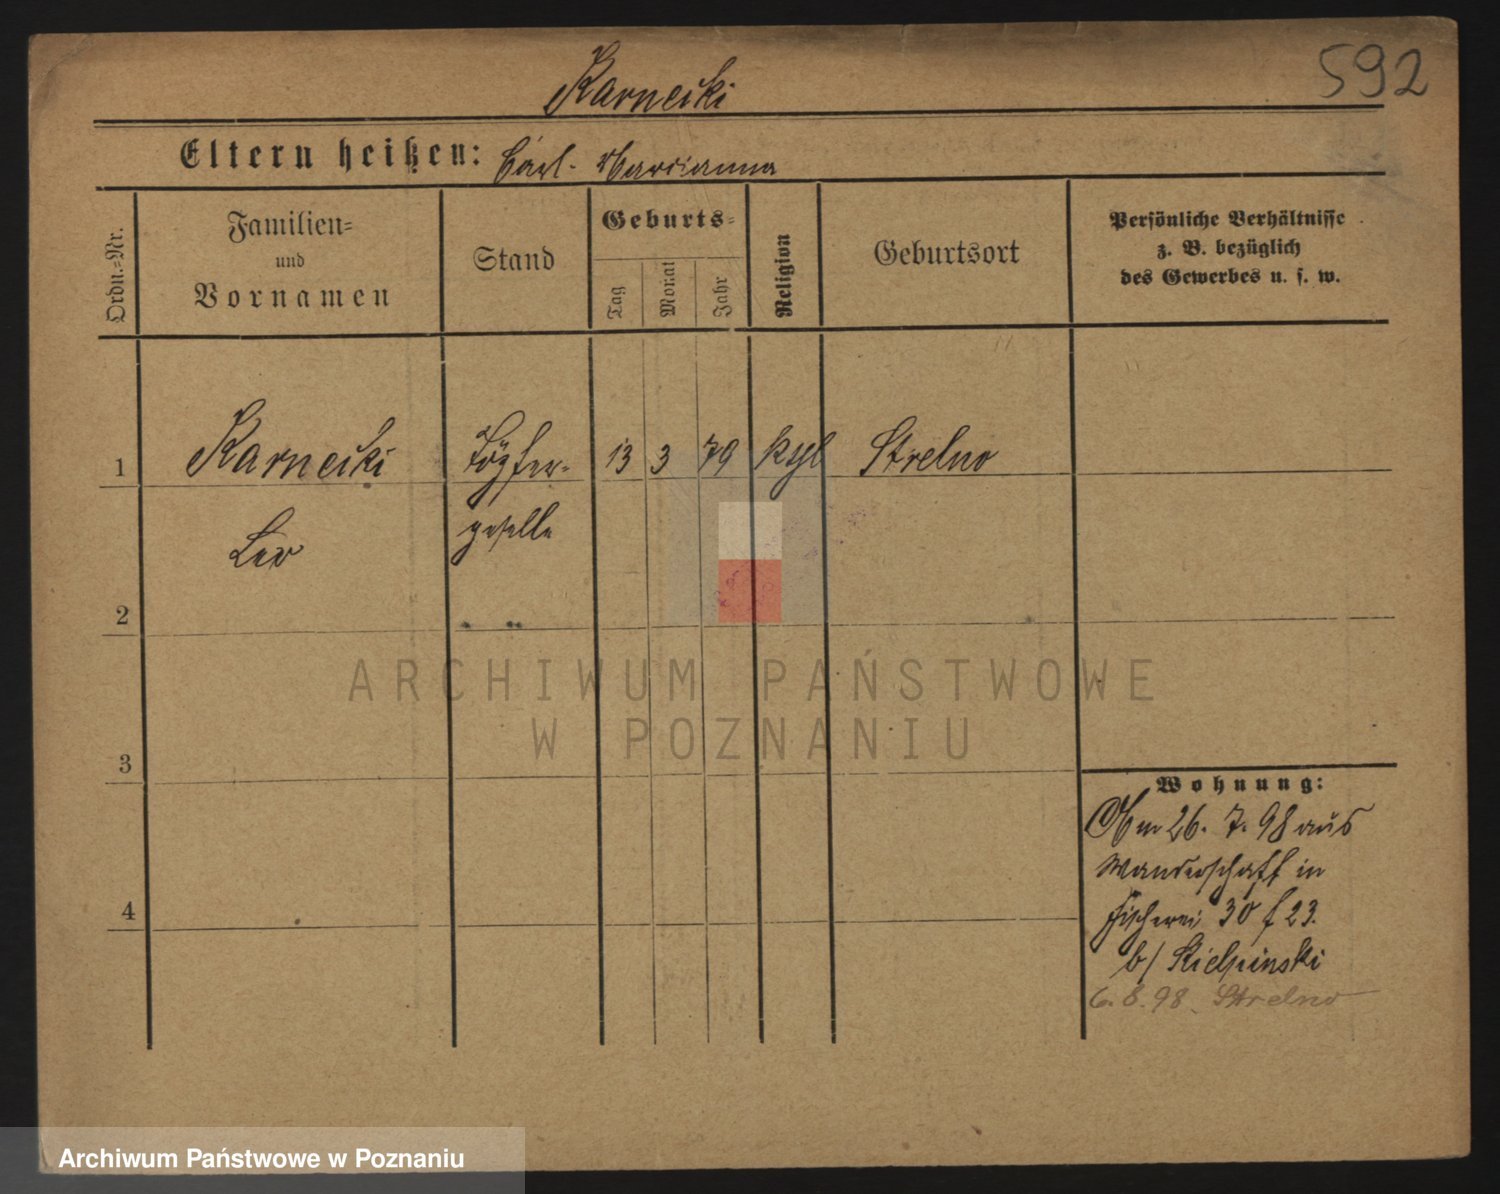 Karnecki
592
Eltern heißen: Carl. Marianna
Ordn.-Nr.
Familien- und Vornamen
Stand
Geburts-
Tag
Monat
Jahr
Religion
Geburtsort
Persönliche Verhältnisse
z. B. bezüglich
des Gewerbes u. s. w.
1 Karnecki Töpfer- 13 3 79 ktl Strelno
Leo geselle
2
3
4
Wohnung:
Am 26. 7. 98 aus
Wanderschaft in
Fischerei 30 f 23.
b/ Kielpinski
6. 8. 98. Strelno
ARCHIWUM PAŃSTWOWE
W POZNANIU
Archiwum Państwowe w Poznaniu